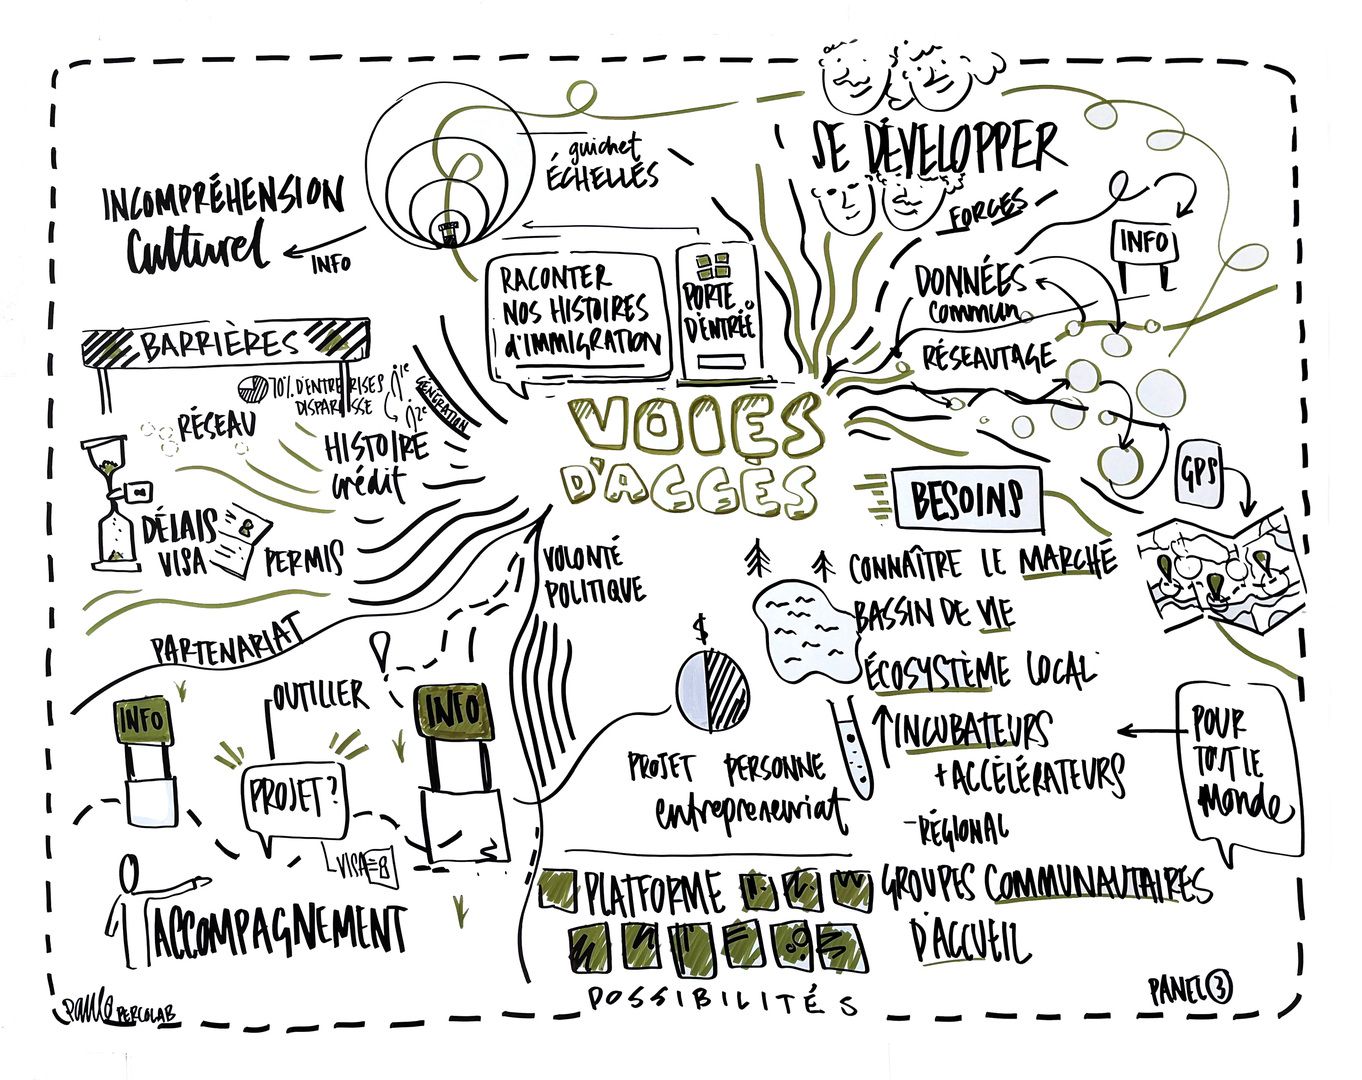 SE DÉVELOPPER
FORCES
guichet
ÉCHELLES
INCOMPRÉHENSION
Culturel
INFO
RACONTER
NOS HISTOIRES
d'IMMIGRATION
PORTE
D'ENTRÉE
INFO
DONNÉES
commun
RÉSEAUTAGE
BARRIÈRES
70% D'ENTREPRISES
DISPARAISSE
1e
2e
GÉNÉRATION
RÉSEAU
HISTOIRE
crédit
DÉLAIS
VISA
PERMIS
VOIES
D'ACCÈS
BESOINS
GPS
CONNAÎTRE LE MARCHÉ
BASSIN DE VIE
ÉCOSYSTÈME LOCAL
INCUBATEURS
+ ACCÉLÉRATEURS
- RÉGIONAL
GROUPES COMMUNAUTAIRES
D'ACCUEIL
POUR
TOUT LE
Monde
VOLONTÉ
POLITIQUE
$
PROJET PERSONNE
entrepreneuriat
PARTENARIAT
INFO
OUTILLER
INFO
PROJET?
VISA
ACCOMPAGNEMENT
PLATFORME
POSSIBILITÉS
PANEL 3
PERCOLAB